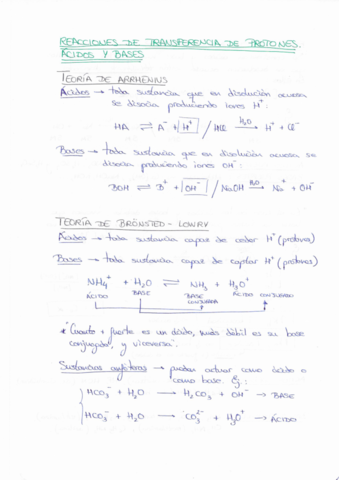 REACCIONES DE TRANSFERENCIA DE PROTONES.
ÁCIDOS Y BASES
TEORÍA DE ARRHENIUS
Ácidos → toda sustancia que en disolución acuosa
se disocia produciendo iones H⁺
HA ⇌ A⁻ + H⁺ / HCl →(H₂O) H⁺ + Cl⁻
Bases → toda sustancia que en disolución acuosa se
disocia produciendo iones OH⁻
BOH ⇌ B⁺ + OH⁻ / NaOH →(H₂O) Na⁺ + OH⁻
TEORÍA DE BRÖNSTED - LOWRY
Ácidos → toda sustancia capaz de ceder H⁺ (protones)
Bases → toda sustancia capaz de captar H⁺ (protones)
NH₄⁺ + H₂O ⇌ NH₃ + H₃O⁺
ÁCIDO BASE BASE CONJUGADA ÁCIDO CONJUGADO
* "Cuanto + fuerte es un ácido, más débil es su base
conjugada, y viceversa".
Sustancias anfóteras → pueden actuar como ácido o
como base. Ej:
HCO₃⁻ + H₂O → H₂CO₃ + OH⁻ → BASE
HCO₃⁻ + H₂O → CO₃²⁻ + H₃O⁺ → ÁCIDO